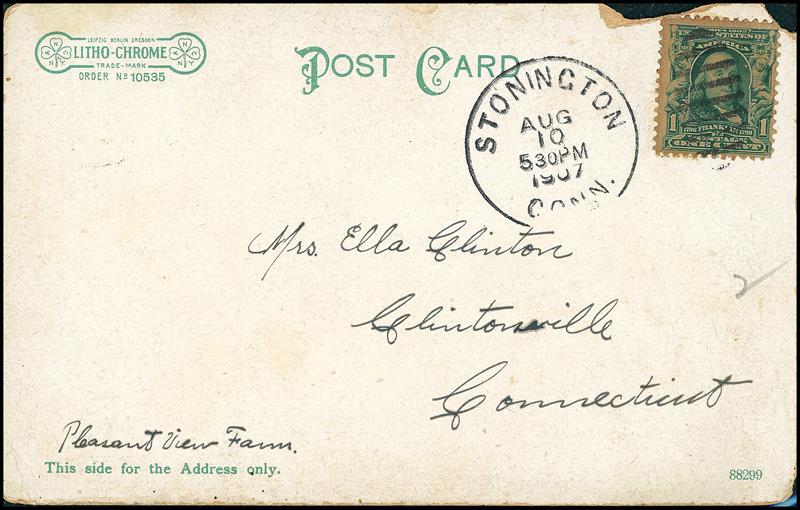 LEIPZIG BERLIN DRESDEN
LITHO-CHROME
TRADE-MARK
ORDER Nº 10535
POST CARD
STONINGTON
AUG
10
530PM
1907
CONN.
AMERICA
1 1
POSTAGE
ONE CENT
Mrs. Ella Clinton
Clintonville
Connecticut
Pleasant View Farm.
This side for the Address only.
88299